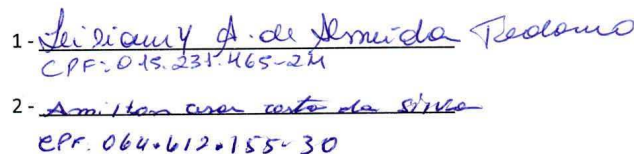 1 - Leidiany A. de Almeida Teodoro
CPF: 015.231.465-24
2 - Amilton cesar costa da silva
CPF. 064.612.155-30